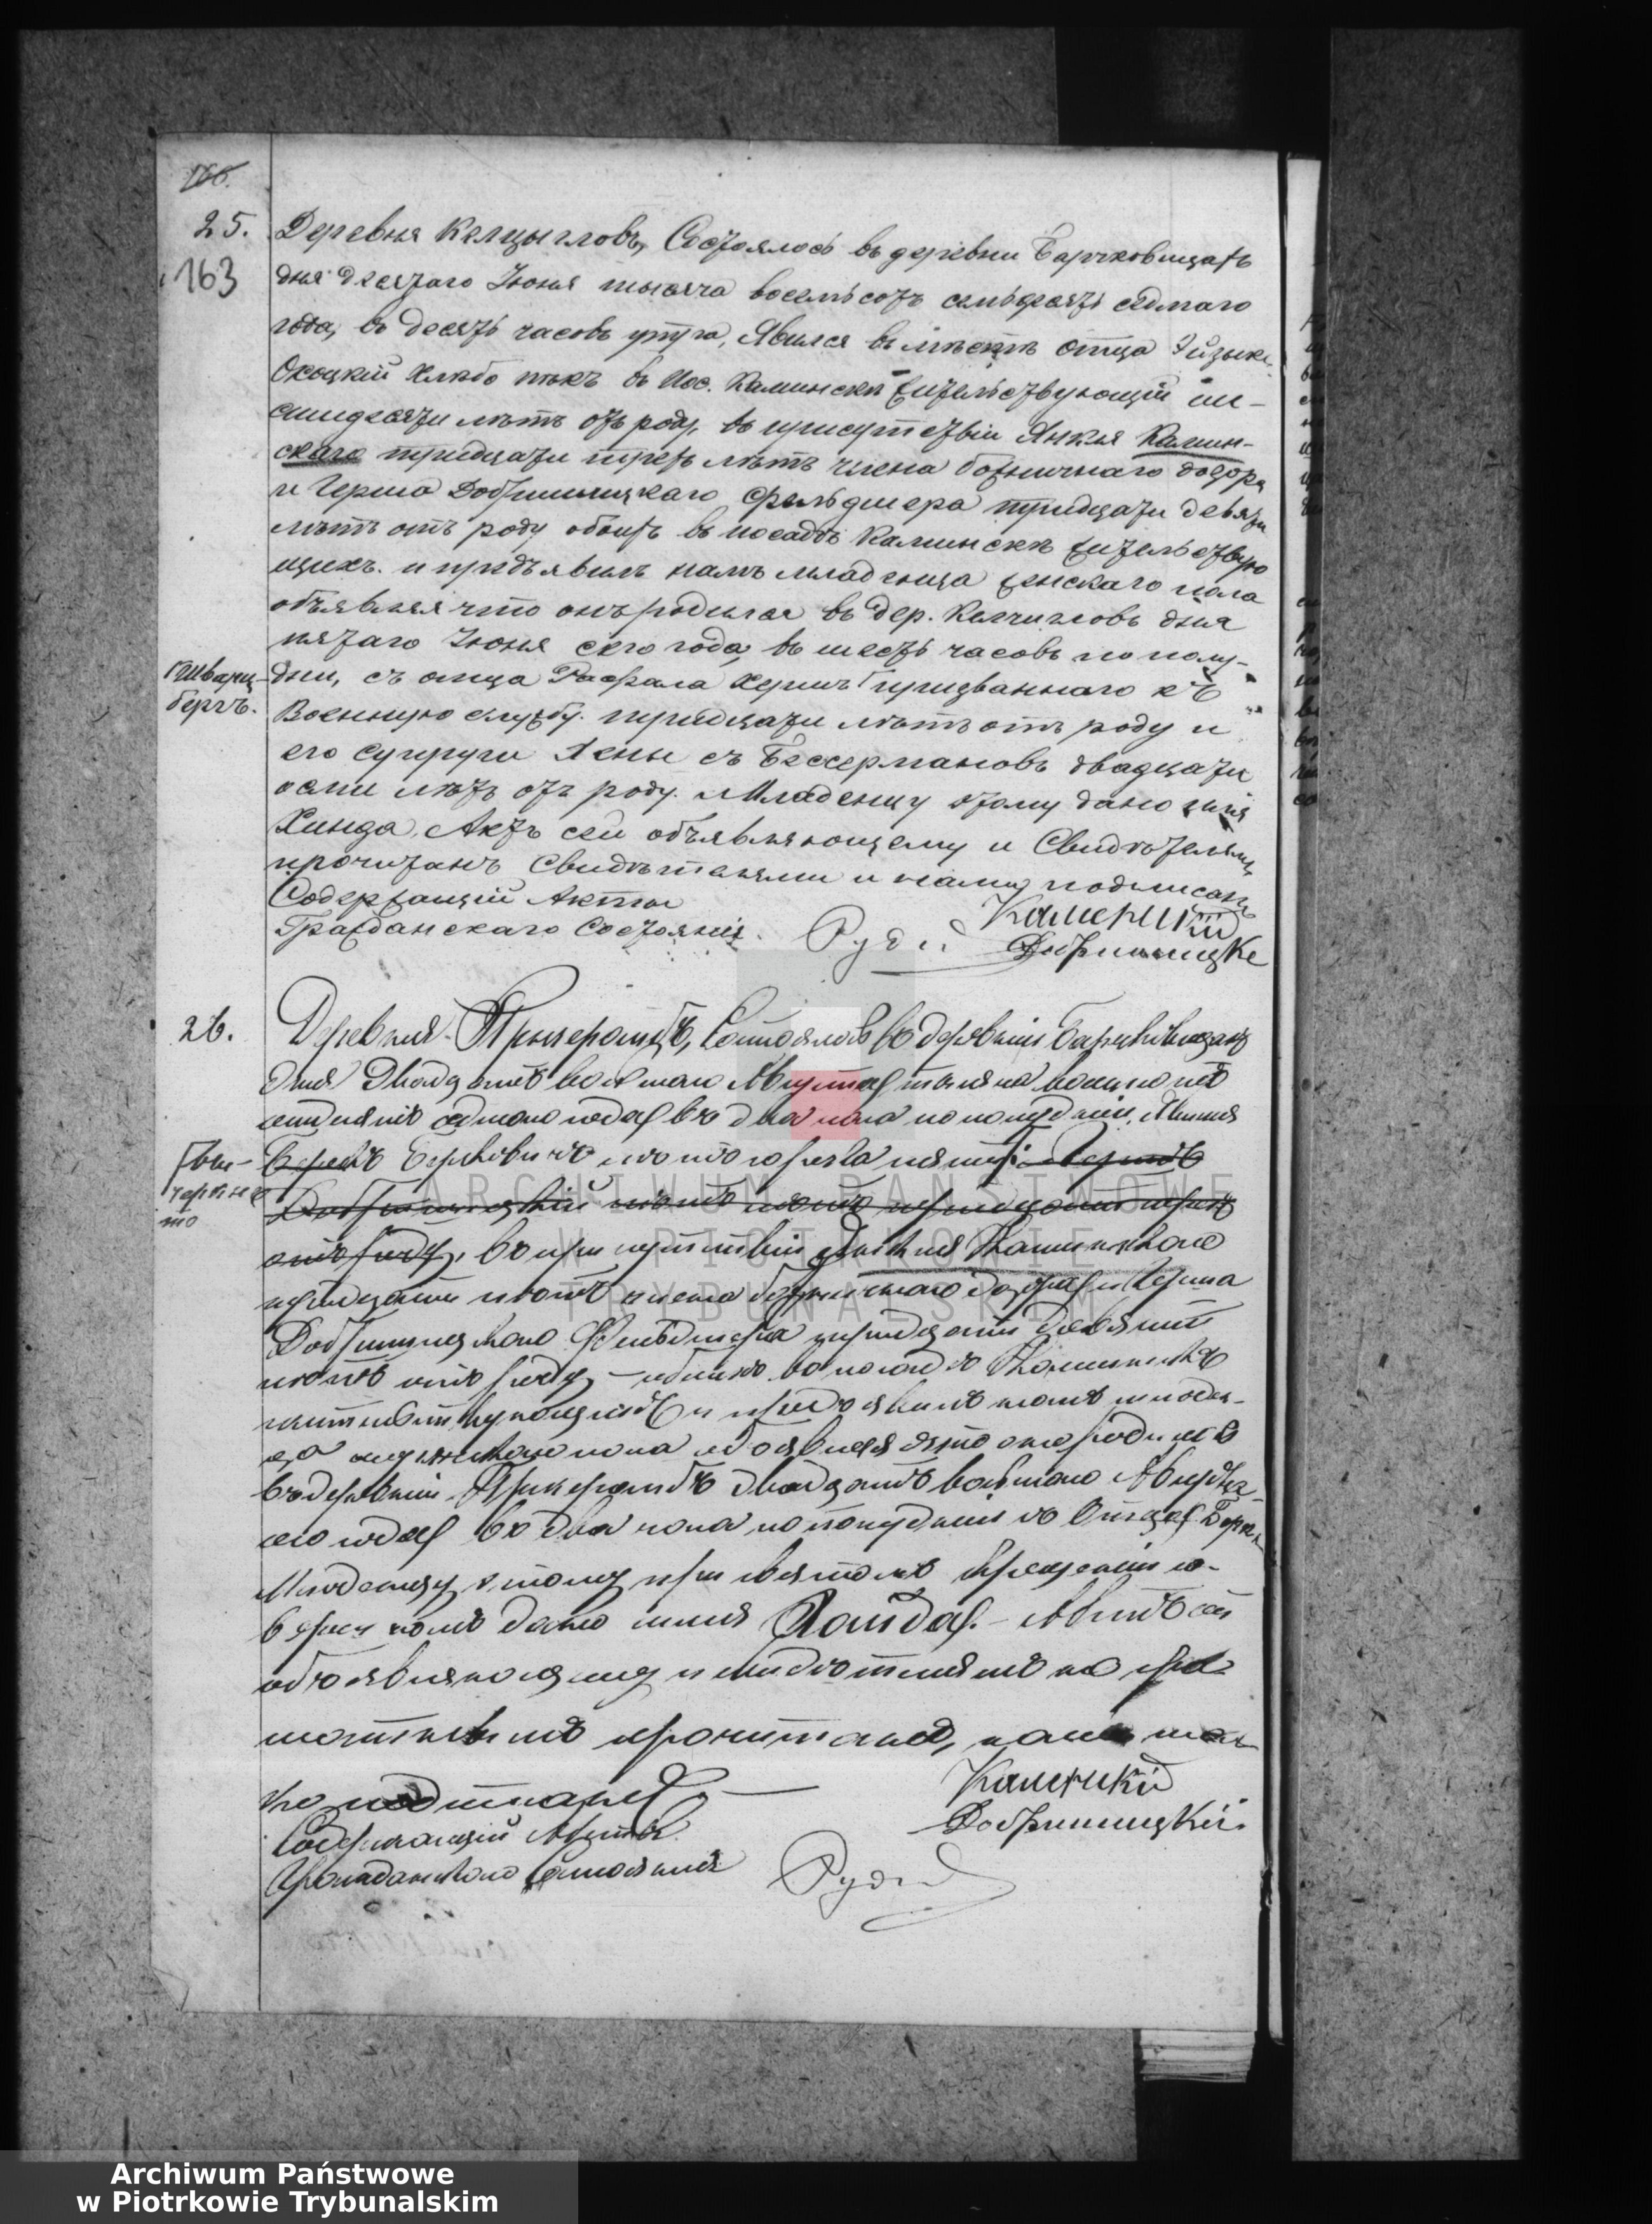 25.
163
Деревня Келчыгловъ, Состоялось въ деревни Барчковицахъ
дня десятаго Іюня тысяча восемьсотъ семьдесятъ седмаго
года, въ десять часовъ утра, Явился вмѣсто отца Эйзыкъ
Окоцкій Хлѣбопѣкъ въ пос. Каминскѣ жительствующій ше-
стидесяти лѣтъ отъ роду, въ присутствіи Янкля Камин-
скаго тридцати трехъ лѣтъ члена божничнаго дозора
и Герша Добришицкаго Фельдшера тридцати девяти
лѣтъ отъ роду обоихъ въ посадѣ Каминскѣ жительствую
щихъ. и предъявилъ намъ младенца женскаго пола
объявляя что онъ родился въ дер. Келчигловъ дня
пятаго Іюня сего года, въ шесть часовъ по полу-
Шварц-
бергъ.
дни, съ отца Рафала Хершъ призваннаго къ
Военную службу. тридцати лѣтъ отъ роду и
его супруги Хены съ Бехермановъ двадцати
осми лѣтъ отъ роду. Младенцу этому дано имя
Хинда. Актъ сей объявляющему и Свидѣтелямъ
прочитанъ Свидѣтелями и нами подписанъ
Содержащій Акты
Гражданскаго Состоянія.
Рудз
Каменскій
Добришицкі
26.
Деревня Состоялось въ деревни Барчковицахъ
дня Двадцать восьмаго Августа тысяча восемьсотъ
семьдесятъ седмаго года въ два часа по полудни, Явился
Берекъ Берковичъ сорока пяти Гершъ
Добришицкій лѣтъ тридцати
отъ роду, въ присутствіи Янкля Каминскаго
тридцати лѣтъ члена божничнаго дозора и Герша
Добришицкаго Фельдшера тридцати девяти
лѣтъ отъ роду, обоихъ въ посадѣ Каминскѣ
жительствующихъ и предъявилъ намъ младен-
ца мужескаго пола объявляя что оно родилось
въ деревни двадцать восьмаго Августа
сего года въ два часа по полудни съ Отца
Младенцу этому при святомъ крещеніи со-
вершономъ дано имя Хаида. Актъ сей
объявляющему и свидѣтелямъ не гра-
мотнымъ прочитанъ, нами толь-
ко подписанъ. —
Содержащій Акты
Гражданскаго Состоянія
Рудз
Каменскій
Добришицкій.
ARCHIWUM PAŃSTWOWE
W PIOTRKOWIE
TRYBUNALSKIM
Archiwum Państwowe
w Piotrkowie Trybunalskim